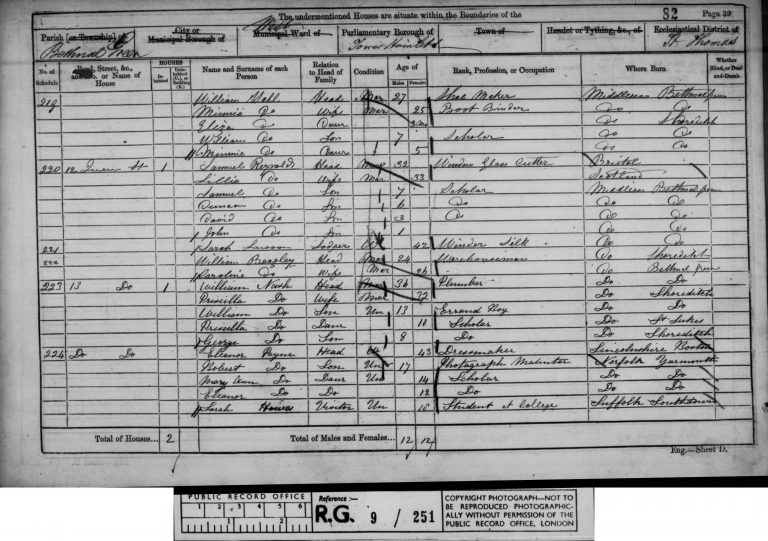 The undermentioned Houses are situate within the Boundaries of the
82 Page 39
Parish [or Township] of Bethnal Green
City or Municipal Borough of
Municipal Ward of West
Parliamentary Borough of Tower Hamlets
Town of
Hamlet or Tything, &c., of
Ecclesiastical District of St Thomas
No. of Schedule
Road, Street, &c., and No. or Name of House
HOUSES
Inhabited
Uninhabited (U.), or Building (B.)
Name and Surname of each Person
Relation to Head of Family
Condition
Age of
Males Females
Rank, Profession, or Occupation
Where Born
Whether Blind, or Deaf-and-Dumb
219 William Head Mar 27 Shoe Maker Middlesex Bethnal green
Minnia Do Wife Mar 25 Boot Binder Do Do
Eliza Do Daur Do Shoreditch
William Do Son 7 Scholar Do Do
Minnie Do Daur 5 Do Do
220 12 St 1 Samuel Reynolds Head Mar 32 Window Glass Cutter Bristol
Lillia Do Wife Mar 33 Scotland
Samuel Do Son 7 Scholar Middlesex Bethnal green
Duncan Do Son 6 Do Do Do
David Do Son 3 Do Do Do
John Do Son 1 Do Do
221 Sarah Lodger 42 Winder Silk Do Do
222 William Beazley Head Mar 24 Warehouseman Do Shoreditch
Caroline Do Wife Mar 26 Do Bethnal green
223 13 Do 1 William Nash Head Mar 36 Plumber Do Do
Priscilla Do Wife Mar 37 Do Shoreditch
William Do Son Un 13 Errand Boy Do Do
Priscilla Do Daur 10 Scholar Do St Lukes
George Do Son 8 Do Do Shoreditch
224 Do Do Eleanor Payne Head W 43 Dressmaker Lincolnshire Boston
Robert Do Son Un 17 Photograph Norfolk Yarmouth
Mary Ann Do Daur Un 14 Scholar Do Do
Eleanor Do Do 12 Do Do Do
Sarah Howes Visitor Un 18 Student at College Suffolk Southtown
Total of Houses... 2 Total of Males and Females... 12 12
Eng.—Sheet D.
PUBLIC RECORD OFFICE
1 2 3 4 5 6
Reference :-
R.G. 9 / 251
COPYRIGHT PHOTOGRAPH—NOT TO BE REPRODUCED PHOTOGRAPHICALLY WITHOUT PERMISSION OF THE PUBLIC RECORD OFFICE, LONDON